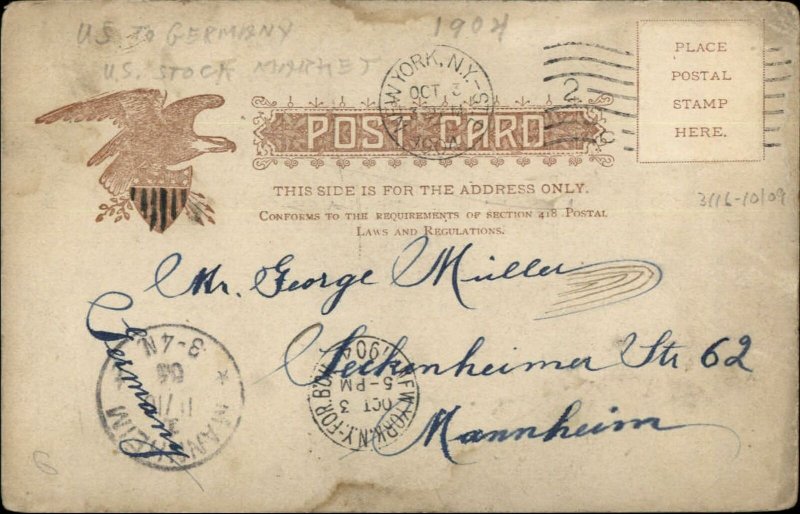 US TO GERMANY
1904
U.S. STOCK MARKET
NEW YORK, N.Y.
OCT 3
1904
PLACE
POSTAL
STAMP
HERE.
POST CARD
THIS SIDE IS FOR THE ADDRESS ONLY.
CONFORMS TO THE REQUIREMENTS OF SECTION 418 POSTAL
LAWS AND REGULATIONS.
3116-10/09
Mr. George Müller
Seckenheimer Str 62
Mannheim
Germany
MANNHEIM
3-4N
NEW YORK, N.Y.-FOR.
OCT 3
5-PM
1904
6